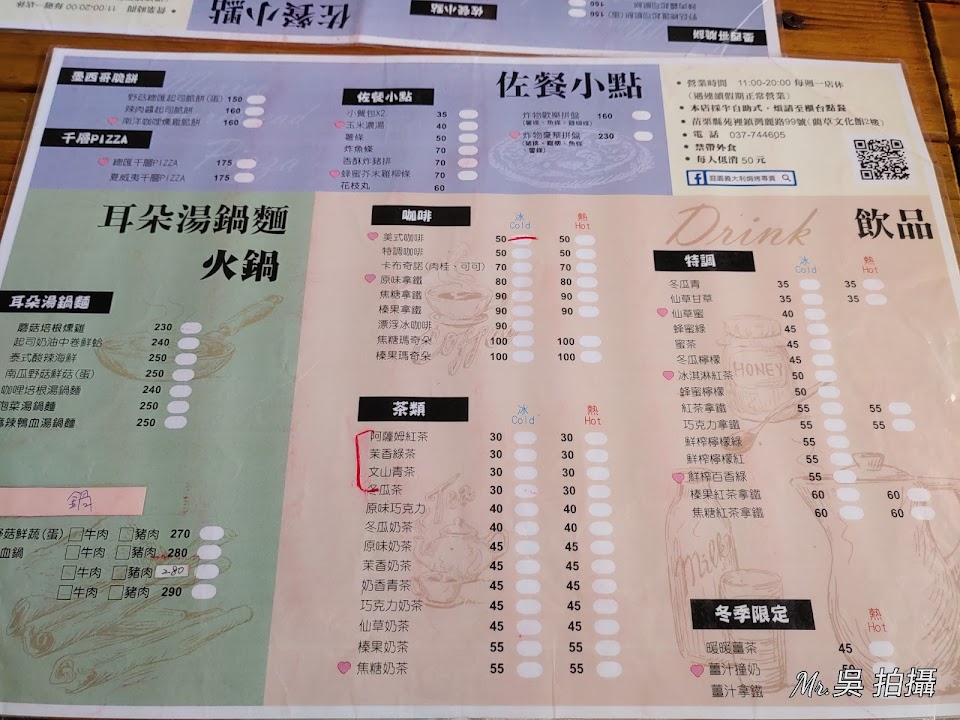 佐餐小點
墨西哥脆餅
野菇總匯起司脆餅(蛋) 150
辣肉醬起司脆餅 160
南洋咖哩燻雞脆餅 160
千層PIZZA
總匯千層PIZZA 175
夏威夷千層PIZZA 175
佐餐小點
小餐包X2 35
玉米濃湯 40
薯條 50
炸魚條 70
香酥炸豬排 70
蜂蜜芥末雞柳條 70
花枝丸 60
佐餐小點
炸物歡樂拼盤 160
炸物豪華拼盤 230
營業時間 11:00-20:00 每週一店休
(遇連續假期正常營業)
本店採半自助式,煩請至櫃台點餐
苗栗縣苑裡鎮灣麗路99號(藺草文化館2樓)
電話 037-744605
禁帶外食
每人低消 50 元
耳朵湯鍋麵
火鍋
耳朵湯鍋麵
蘑菇培根燻雞 230
起司奶油中卷鮮蛤 240
泰式酸辣海鮮 250
南瓜野菇鮮菇(蛋) 250
咖哩培根湯鍋麵 240
泡菜湯鍋麵 250
麻辣鴨血湯鍋麵 250
鍋
野菇鮮蔬(蛋) 牛肉 豬肉 270
血鍋 牛肉 豬肉 280
牛肉 豬肉 280
牛肉 豬肉 290
咖啡
冰 Cold 熱 Hot
美式咖啡 50 50
特調咖啡 50 50
卡布奇諾(肉桂、可可) 70 70
原味拿鐵 80 80
焦糖拿鐵 90 90
榛果拿鐵 90 90
漂浮冰咖啡 90
焦糖瑪奇朵 100 100
榛果瑪奇朵 100 100
茶類
冰 Cold 熱 Hot
阿薩姆紅茶 30 30
茉香綠茶 30 30
文山青茶 30 30
冬瓜茶 30 30
原味巧克力 40 40
冬瓜奶茶 40 40
原味奶茶 45 45
茉香奶茶 45 45
奶香青茶 45 45
巧克力奶茶 45 45
仙草奶茶 45 45
榛果奶茶 55 55
焦糖奶茶 55 55
Drink 飲品
特調
冰 Cold 熱 Hot
冬瓜青 35 35
仙草甘草 35 35
仙草蜜 40
蜂蜜綠 45
蜜茶 45
冬瓜檸檬 45
冰淇淋紅茶 50
蜂蜜檸檬 50
紅茶拿鐵 55 55
巧克力拿鐵 55 55
鮮榨檸檬綠 55
鮮榨檸檬紅 55
鮮榨百香綠 55
榛果紅茶拿鐵 60 60
焦糖紅茶拿鐵 60 60
HONEY
Milk
冬季限定
熱 Hot
暖暖薑茶 45
薑汁撞奶
薑汁拿鐵
Mr.吳 拍攝